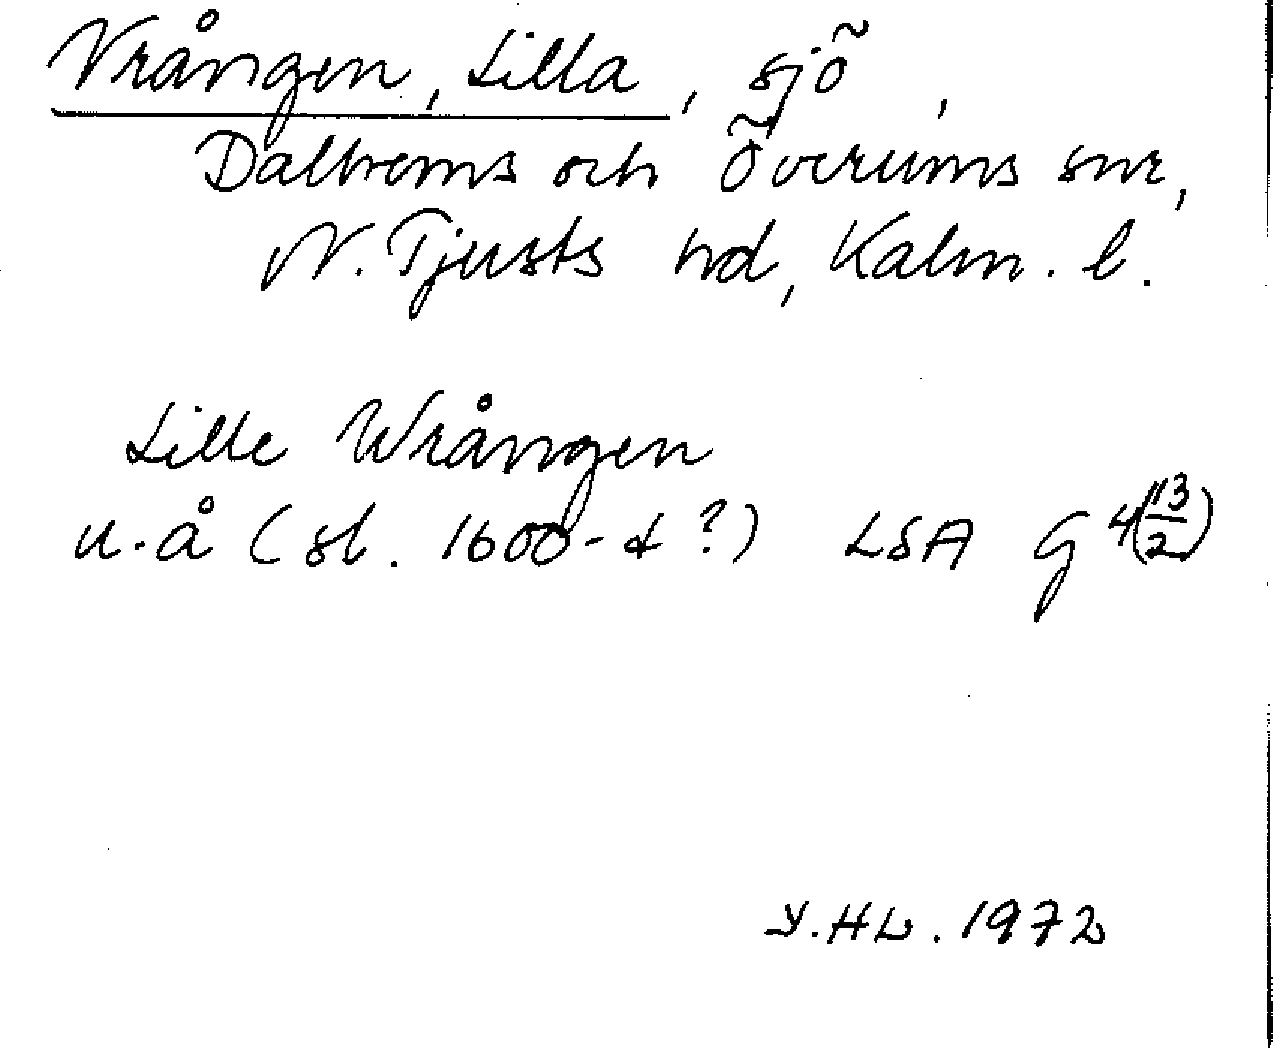 Vrången, Lilla, sjö,
Dalhems och Överums snr,
N. Tjusts hd, Kalm. l.
Lille Wrången
u. å (sl. 1600-t ?) LSA G 4(13/2)
Y. HL. 1972